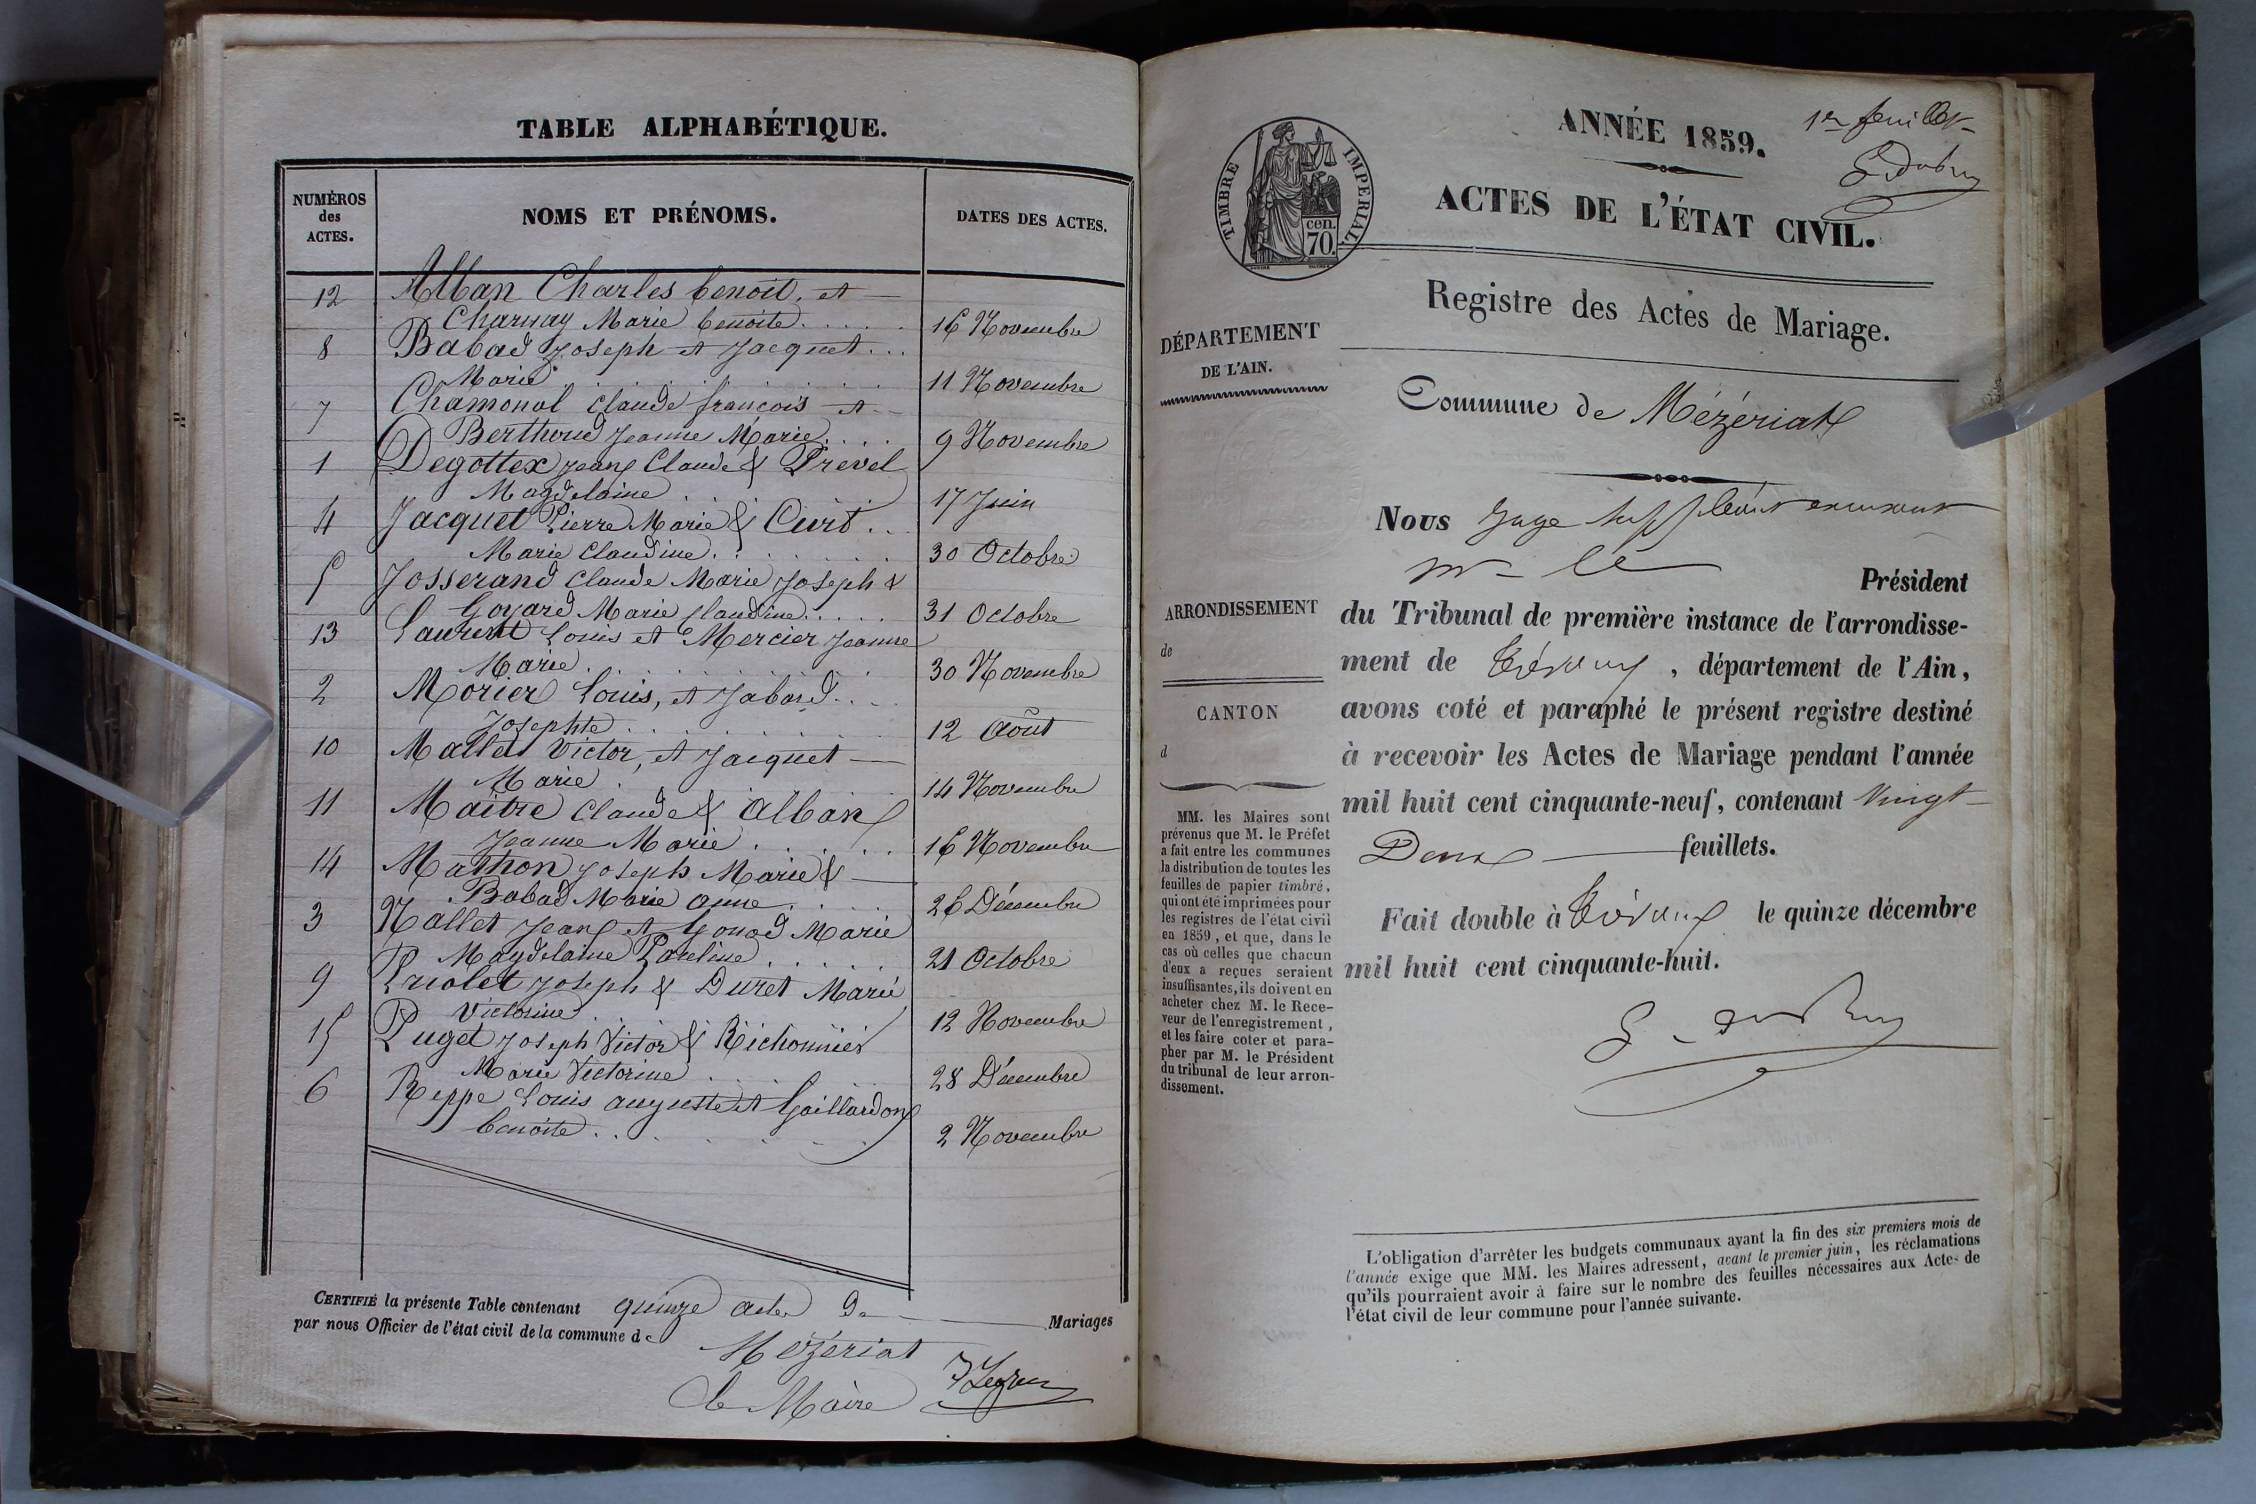 TABLE ALPHABÉTIQUE.
NUMÉROS
des
ACTES.
NOMS ET PRÉNOMS.
DATES DES ACTES.
12 Alban Charles benoit, et
Charnay Marie benoite 16 Novembre
8 Babad Joseph et Jacquet
Marie 11 Novembre
7 Chamonal Claude françois et
Berthoud Jeanne Marie 9 Novembre
1 Degottex Jean Claude & Prevel
Magdelaine 17 Juin
4 Jacquet Pierre Marie & Curt
Marie Claudine 30 Octobre
5 Josserand Claude Marie Joseph &
Goyard Marie Claudine 31 Octobre
13 Laurent Louis et Mercier Jeanne
Marie 30 Novembre
2 Morier Louis, et Jabard
Josephte 12 Août
10 Mallet Victor, et Jacquet
Marie 14 Novembre
11 Maitre Claude & Alban
Jeanne Marie 16 Novembre
14 Mathon Joseph Marie &
Babad Marie Anne 26 Décembre
3 Nallet Jean et Gonod Marie
Magdelaine 21 Octobre
9 Priolet Joseph & Duret Marie
Victorine 12 Novembre
15 Puget Joseph Victor & Richonnier
Marie Victorine 28 Décembre
6 Reppe Louis auguste et Gaillardon
benoite 2 Novembre
CERTIFIÉ la présente Table contenant quinze actes de Mariages
par nous Officier de l'état civil de la commune de
Mézériat
le Maire
1er feuillet
ANNÉE 1859.
TIMBRE IMPÉRIAL
cen.
70.
ACTES DE L'ÉTAT CIVIL.
Registre des Actes de Mariage.
DÉPARTEMENT
DE L'AIN.
Commune de Mézériat
Nous Juge suppléant
mr le Président
ARRONDISSEMENT
de
CANTON
d
du Tribunal de première instance de l'arrondisse-
ment de Trévoux, département de l'Ain,
avons coté et paraphé le présent registre destiné
à recevoir les Actes de Mariage pendant l'année
mil huit cent cinquante-neuf, contenant Vingt
Deux feuillets.
Fait double à Trévoux le quinze décembre
mil huit cent cinquante-huit.
MM. les Maires sont
prévenus que M. le Préfet
a fait entre les communes
la distribution de toutes les
feuilles de papier timbré,
qui ont été imprimées pour
les registres de l'état civil
en 1859, et que, dans le
cas où celles que chacun
d'eux a reçues seraient
insuffisantes, ils doivent en
acheter chez M. le Rece-
veur de l'enregistrement,
et les faire coter et para-
pher par M. le Président
du tribunal de leur arron-
dissement.
L'obligation d'arrêter les budgets communaux avant la fin des six premiers mois de
l'année exige que MM. les Maires adressent, avant le premier juin, les réclamations
qu'ils pourraient avoir à faire sur le nombre des feuilles nécessaires aux Actes de
l'état civil de leur commune pour l'année suivante.